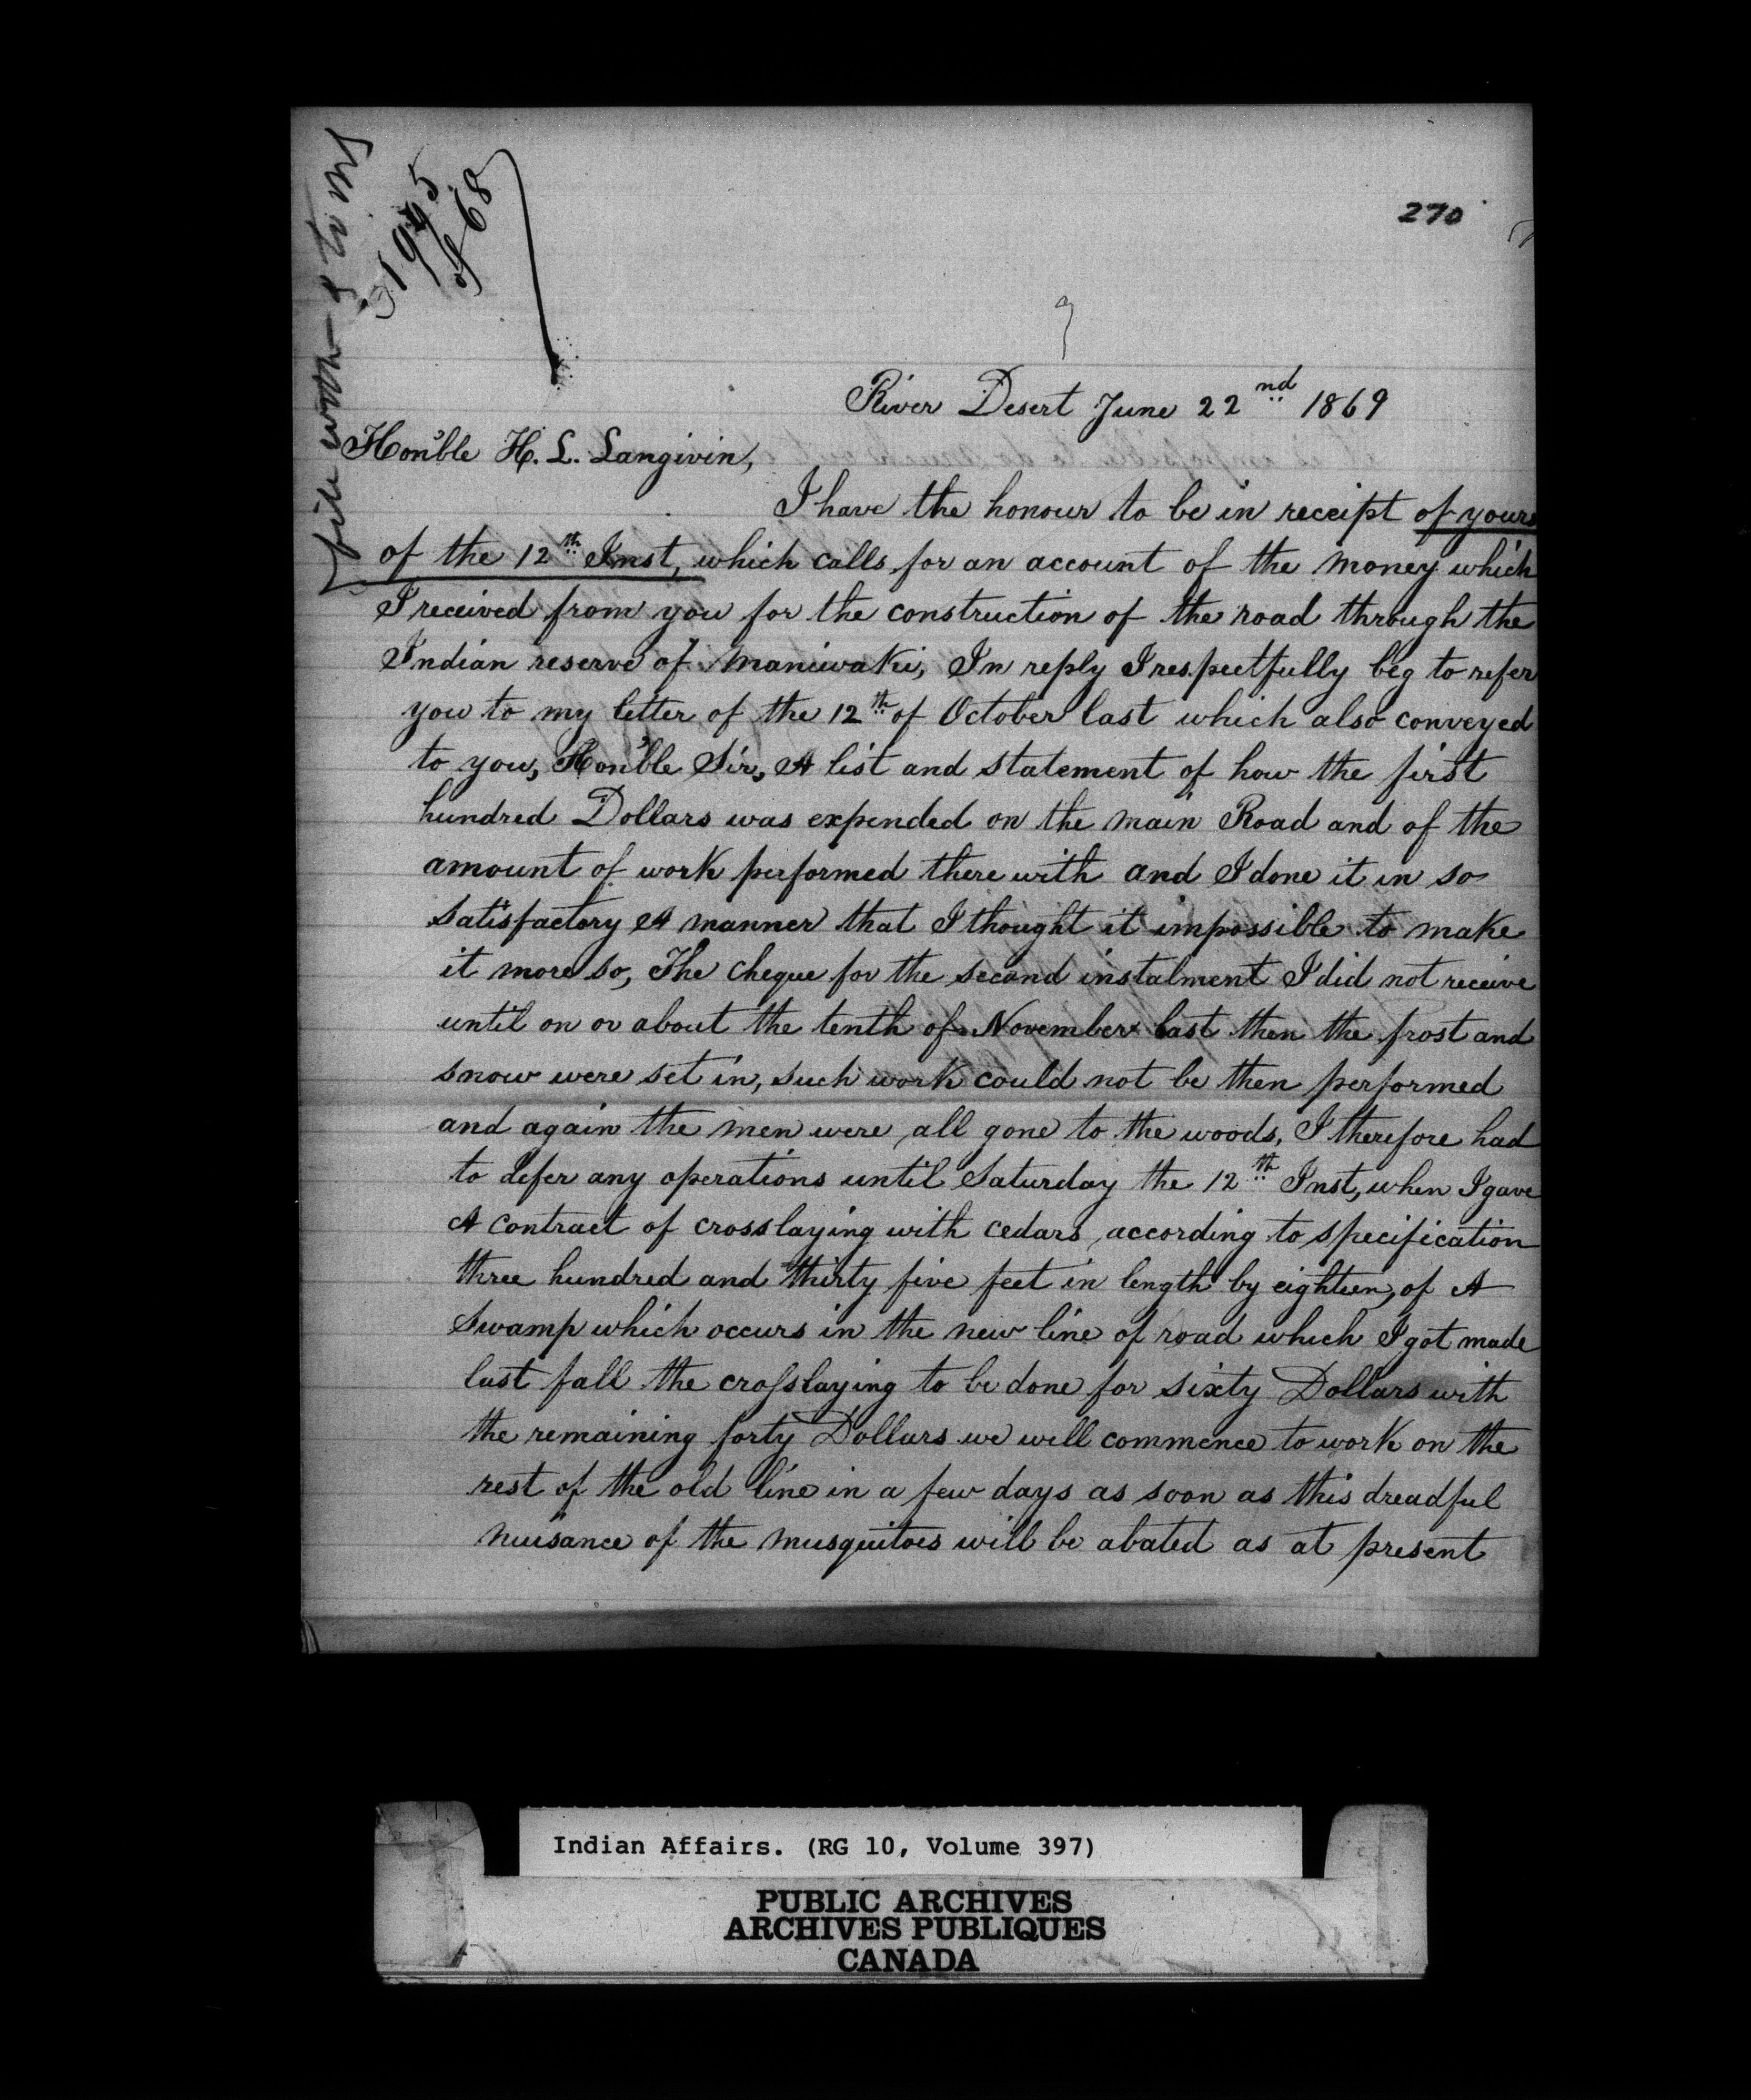 270
1945
of 68
River Desert June 22nd 1869
Hon'ble H. L. Langivin,
I have the honour to be in receipt of yours
of the 12th Inst, which calls for an account of the money which
I received from you for the construction of the road through the
Indian reserve of Maniwaki, In reply I respectfully beg to refer
you to my letter of the 12th of October last which also conveyed
to you, Hon'ble Sir, A list and statement of how the first
hundred Dollars was expended on the main Road and of the
amount of work performed there with and I done it in so
satisfactory A manner that I thought it impossible to make
it more so, The cheque for the second instalment I did not receive
until on or about the tenth of November last then the frost and
snow were set in, such work could not be then performed
and again the men were all gone to the woods, I therefore had
to defer any operations until Saturday the 12th Inst, when I gave
A contract of crosslaying with cedars, according to specification
three hundred and thirty five feet in length by eighteen, of A
Swamp which occurs in the new line of road which I got made
last fall the crosslaying to be done for sixty Dollars with
the remaining forty Dollars we will commence to work on the
rest of the old line in a few days as soon as this dreadful
nuisance of the musquitoes will be abated as at present
Indian Affairs. (RG 10, Volume 397)
PUBLIC ARCHIVES
ARCHIVES PUBLIQUES
CANADA